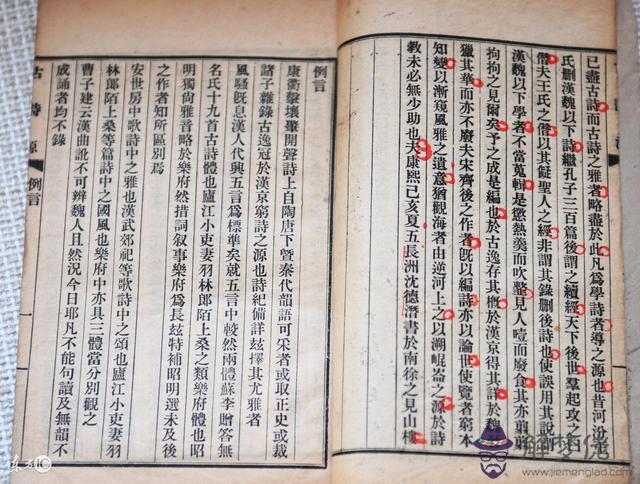 已盡古詩而古詩之雅者略盡於此凡爲學詩者導之源也昔河汾
氏刪漢魏以下詩繼孔子三百篇後謂之續經天下後世羣起攻之
僭夫王氏之僭以其儗聖人之經非謂其錄刪後詩也使誤用其說
漢魏以下學者不當蒐輯是懲熱羹而吹虀見人噎而廢食其亦翦
拘拘之見爾矣予之成是編也於古逸存其槪於漢京得其詳於魏
獵其華而亦不廢夫宋齊後之作者旣以編詩亦以論世使覽者窮本
知變以漸窺風雅之遺意猶觀海者由逆河上之以溯崐崙之源於詩
敎未必無少助也夫康熙己亥夏五長洲沈德潛書於南徐之見山樓
例言
康衢擊壤肇開聲詩上自陶唐下曁秦代韻語可采者或取正史或裁
諸子雜錄古逸冠於漢京窮詩之源也詩紀備詳茲擇其尤雅者
風騷旣息漢人代興五言爲標準矣就五言中較然兩體蘇李贈答無
名氏十九首古詩體也廬江小吏妻羽林郎陌上桑之類樂府體也昭
明獨尚雅音略於樂府然措詞叙事樂府爲長茲特補昭明選未及後
之作者知所區別焉
安世房中歌詩中之雅也漢武郊祀等歌詩中之頌也廬江小吏妻羽
林郎陌上桑等篇詩中之國風也樂府中亦具三體當分別觀之
曹子建云漢曲訛不可辨魏人且然況今日耶凡不能句讀及無韻不
成誦者均不錄
古詩源
例言
一
www.jiemengdad.com